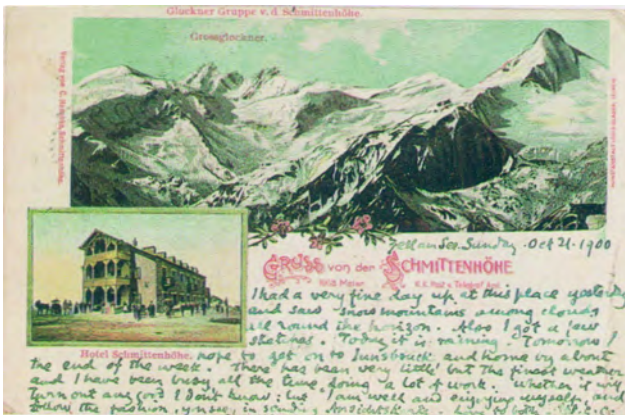 Glockner Gruppe v. d. Schmittenhöhe.
Grossglockner.
Zell am See. Sunday. Oct 21. 1900
GRUSS von der SCHMITTENHÖHE.
1968 Meter. K.K. Post u. Telegraf Amt.
I had a very fine day up at this place yesterday
and saw snow mountains among clouds
all round the horizon. Also I got a few
sketches. Today it is raining. Tomorrow I
Hotel Schmittenhöhe.
hope to get on to Innsbruck and home by about
the end of the week. There has been very little but the finest weather
and I have been busy all the time, doing a lot of work. Whether it will
turn out any good I don't know; but I am well and enjoying myself, and
follow the fashion, you see, in sending Ansichtskarten.